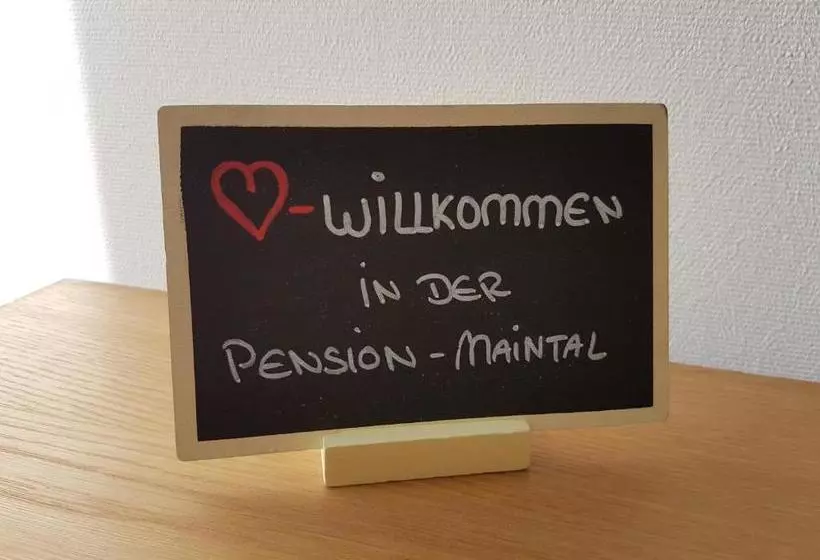 ❤-WILLKOMMEN
IN DER
PENSION-MAINTAL